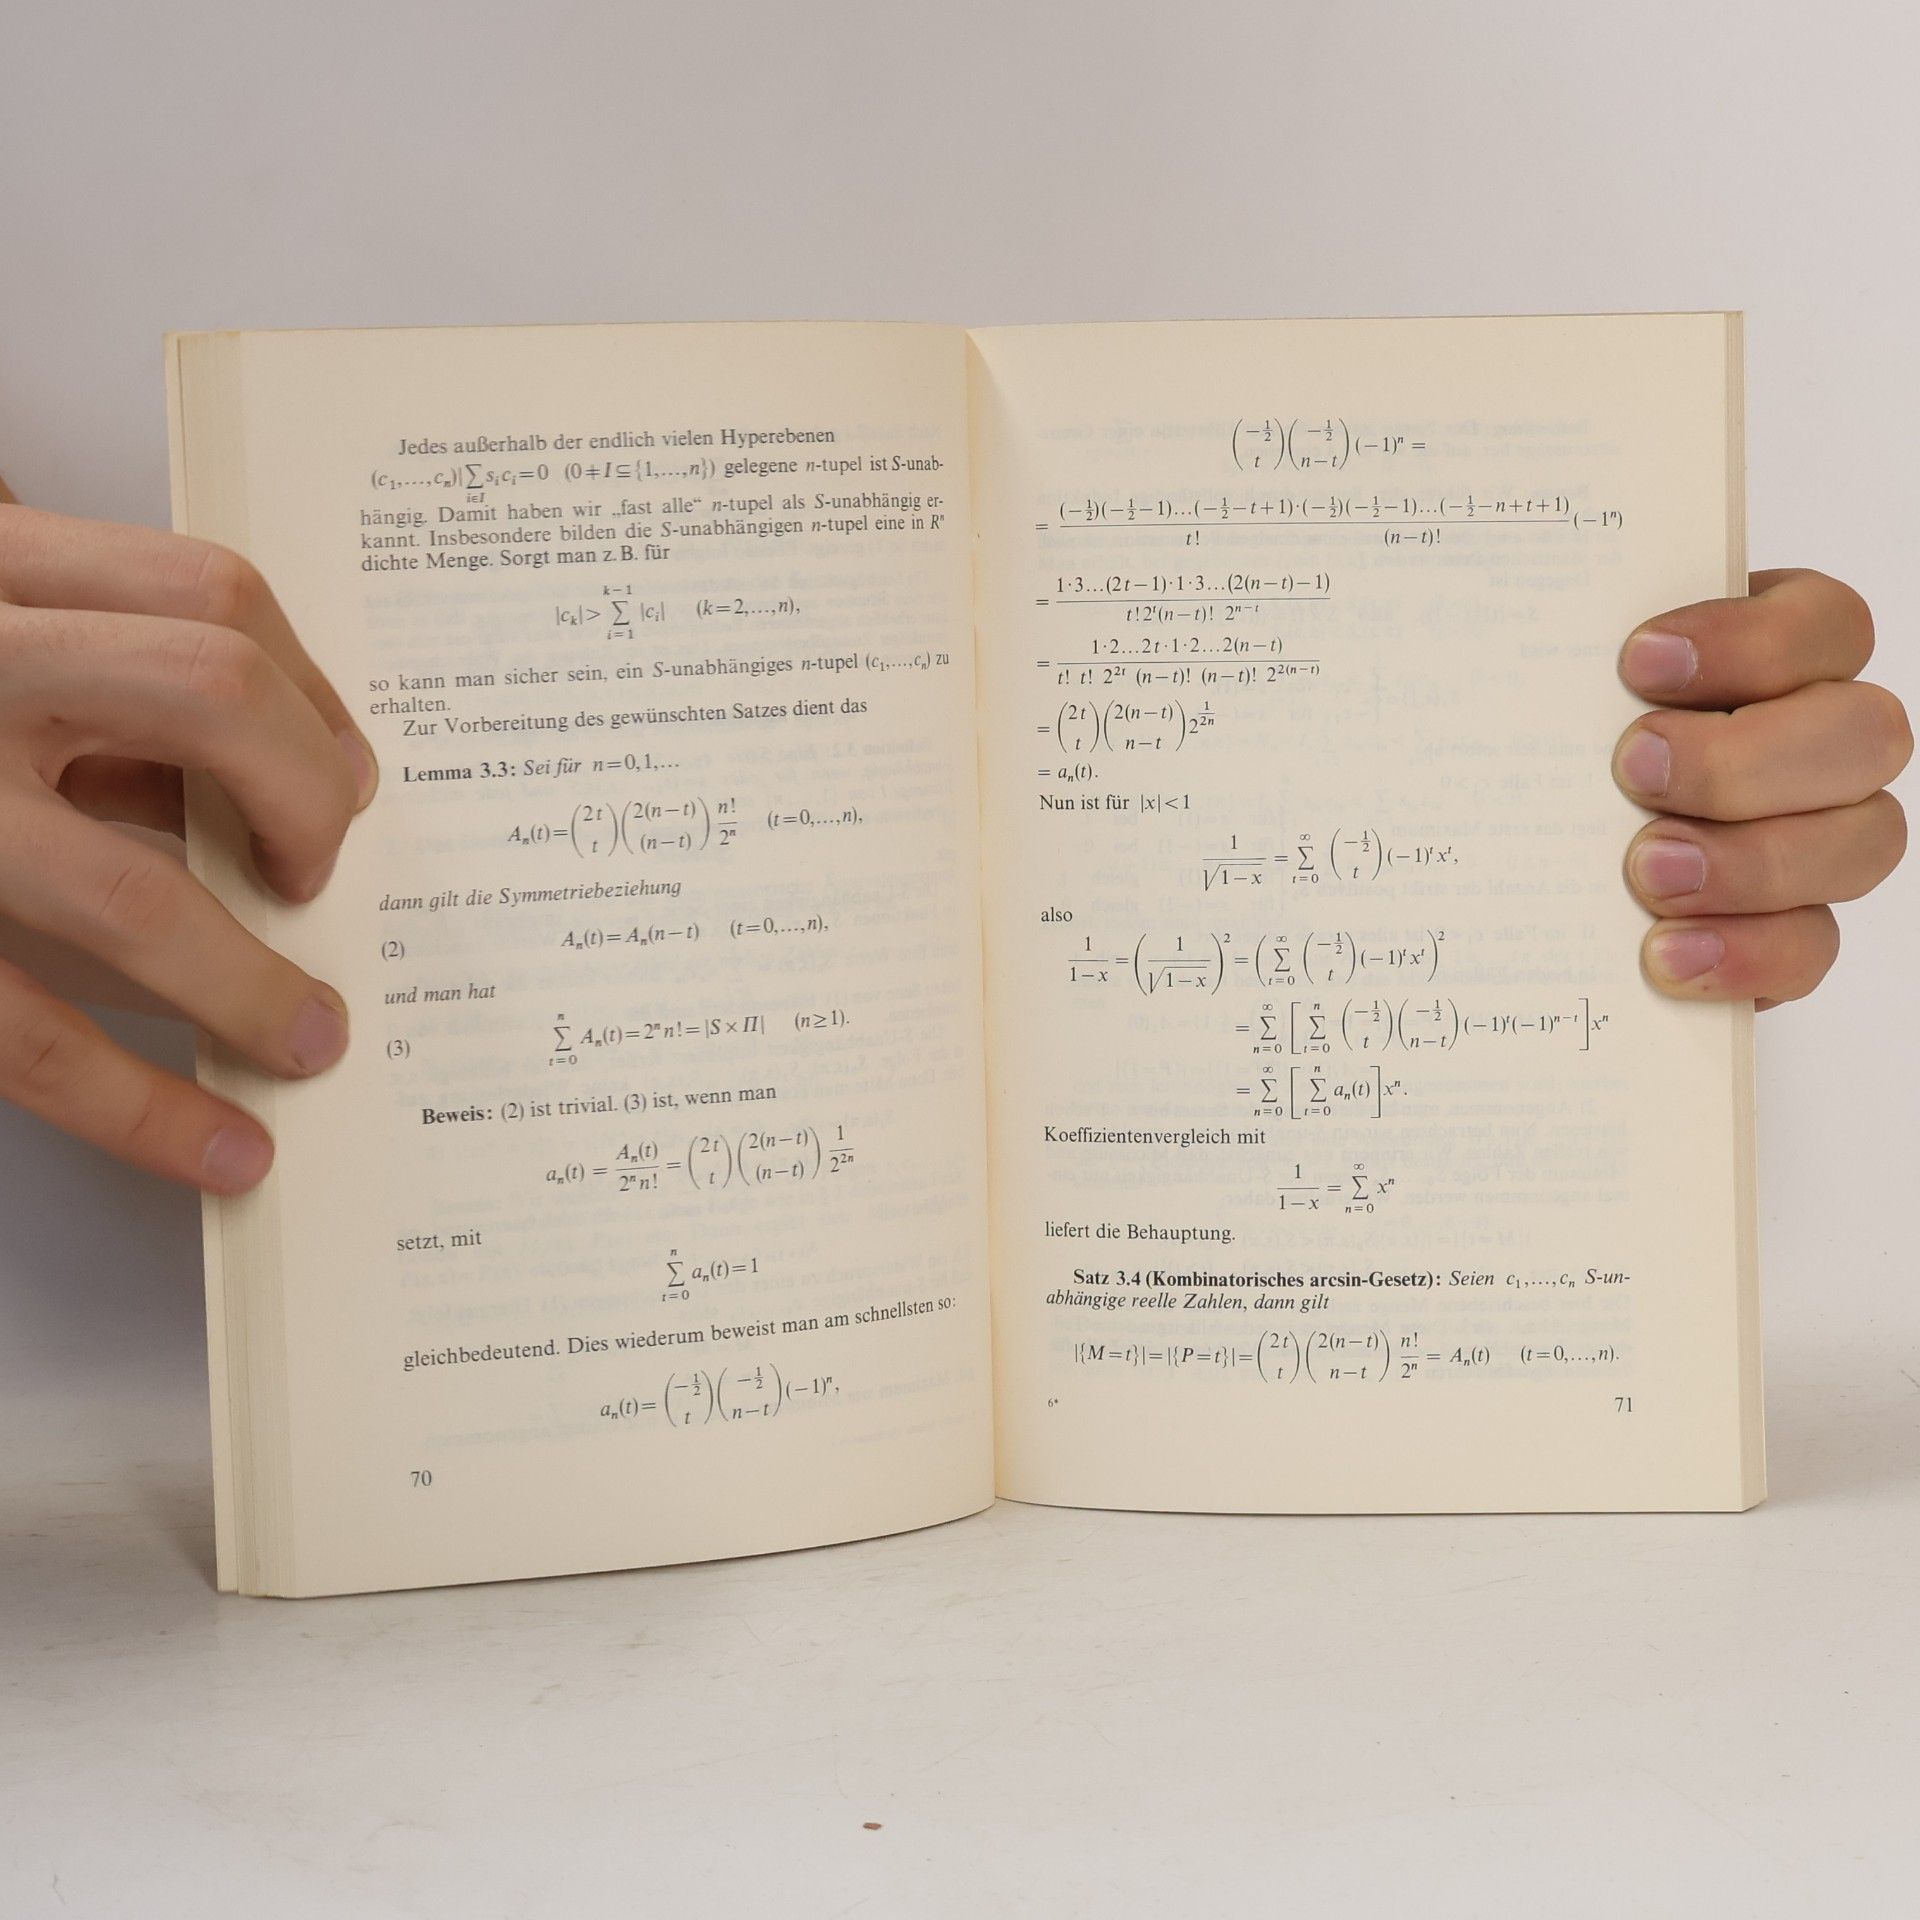 Jedes außerhalb der endlich vielen Hyperebenen
(c₁,...,cₙ)|∑_{i∈I} sᵢcᵢ=0 (0≠I⊆{1,...,n}) gelegene n-tupel ist S-unab-
hängig. Damit haben wir „fast alle“ n-tupel als S-unabhängig er-
kannt. Insbesondere bilden die S-unabhängigen n-tupel eine in Rⁿ
dichte Menge. Sorgt man z. B. für
|c_k| > ∑_{i=1}^{k-1} |c_i| (k=2,...,n),
so kann man sicher sein, ein S-unabhängiges n-tupel (c₁,...,cₙ) zu
erhalten.
Zur Vorbereitung des gewünschten Satzes dient das
Lemma 3.3: Sei für n=0,1,...
A_n(t) = \binom{2t}{t} \binom{2(n-t)}{(n-t)} \frac{n!}{2^n} (t=0,...,n),
dann gilt die Symmetriebeziehung
(2) A_n(t)=A_n(n-t) (t=0,...,n),
und man hat
(3) ∑_{t=0}^{n} A_n(t)=2^n n!=|S×Π| (n≥1).
Beweis: (2) ist trivial. (3) ist, wenn man
a_n(t) = \frac{A_n(t)}{2^n n!} = \binom{2t}{t} \binom{2(n-t)}{(n-t)} \frac{1}{2^{2n}}
setzt, mit
∑_{t=0}^{n} a_n(t)=1
gleichbedeutend. Dies wiederum beweist man am schnellsten so:
a_n(t)= \binom{-\frac{1}{2}}{t} \binom{-\frac{1}{2}}{n-t} (-1)^n,
70
\binom{-\frac{1}{2}}{t} \binom{-\frac{1}{2}}{n-t} (-1)^n =
= \frac{(-\frac{1}{2})(-\frac{1}{2}-1)...(-\frac{1}{2}-t+1)·(-\frac{1}{2})(-\frac{1}{2}-1)...(-\frac{1}{2}-n+t+1)}{t! (n-t)!} (-1^n)
= \frac{1·3...(2t-1)·1·3...(2(n-t)-1)}{t! 2^t (n-t)! 2^{n-t}}
= \frac{1·2...2t·1·2...2(n-t)}{t! t! 2^{2t} (n-t)! (n-t)! 2^{2(n-t)}}
= \binom{2t}{t} \binom{2(n-t)}{n-t} 2^{\frac{1}{2n}}
= a_n(t).
Nun ist für |x|<1
\frac{1}{\sqrt{1-x}} = ∑_{t=0}^{∞} \binom{-\frac{1}{2}}{t} (-1)^t x^t,
also
\frac{1}{1-x} = \left(\frac{1}{\sqrt{1-x}}\right)^2 = \left(∑_{t=0}^{∞} \binom{-\frac{1}{2}}{t} (-1)^t x^t\right)^2
= ∑_{n=0}^{∞} \left[∑_{t=0}^{n} \binom{-\frac{1}{2}}{t} \binom{-\frac{1}{2}}{n-t} (-1)^t (-1)^{n-t}\right] x^n
= ∑_{n=0}^{∞} \left[∑_{t=0}^{n} a_n(t)\right] x^n.
Koeffizientenvergleich mit
\frac{1}{1-x} = ∑_{n=0}^{∞} x^n
liefert die Behauptung.
Satz 3.4 (Kombinatorisches arcsin-Gesetz): Seien c₁,...,cₙ S-un-
abhängige reelle Zahlen, dann gilt
|{M=t}|=|{P=t}|= \binom{2t}{t} \binom{2(n-t)}{n-t} \frac{n!}{2^n} = A_n(t) (t=0,...,n).
6*
71